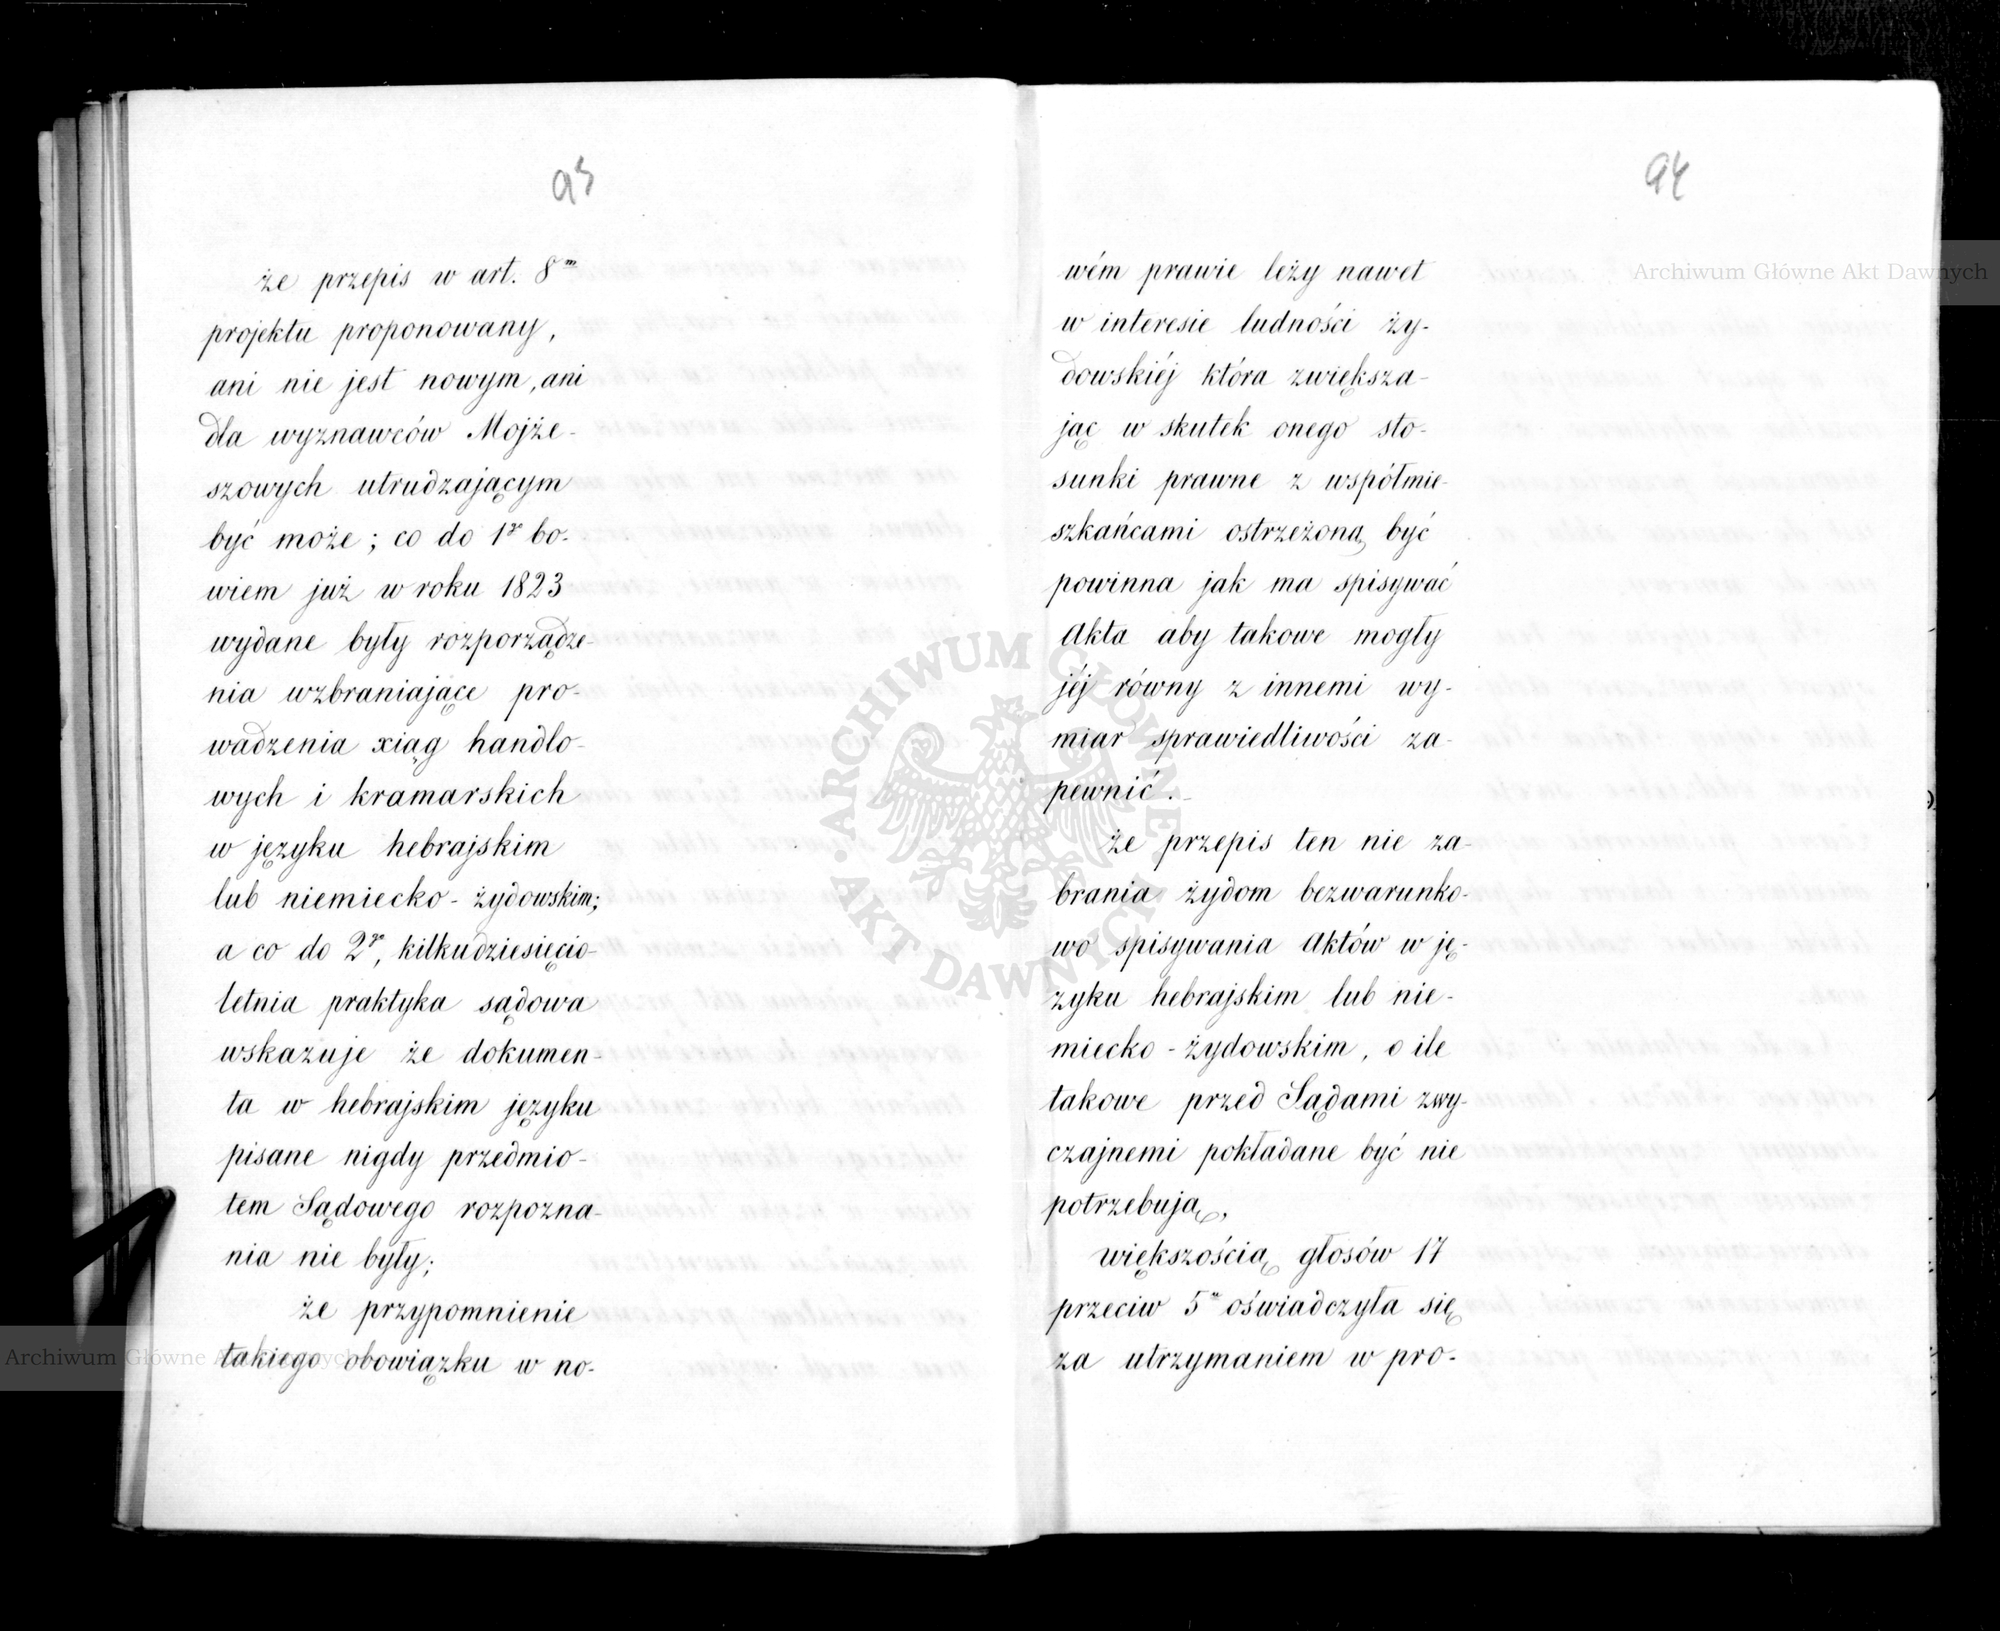 93
że przepis w art. 8m
projektu proponowany,
ani nie jest nowym, ani
dla wyznawców Mojże-
szowych utrudzającym
być może; co do 1go bo-
wiem już w roku 1823
wydane były rozporządze-
nia wzbraniające pro-
wadzenia xiąg handlo-
wych i kramarskich
w języku hebrajskim
lub niemiecko-żydowskim;
a co do 2go, kilkudziesięcio-
letnia praktyka sądowa
wskazuje że dokumen-
ta w hebrajskim języku
pisane nigdy przedmio-
tem Sądowego rozpozna-
nia nie były;
że przypomnienie
takiego obowiązku w no-
94
wém prawie leży nawet
w interesie ludności ży-
dowskiéj która zwiększa-
jąc w skutek onego sto-
sunki prawne z wspólmie-
szkańcami ostrzeżoną być
powinna jak ma spisywać
Akta aby takowe mogły
jéj równy z innemi wy-
miar sprawiedliwości za-
pewnić.
że przepis ten nie za-
brania żydom bezwarunko-
wo spisywania Aktów w ję-
zyku hebrajskim lub nie-
miecko-żydowskim, o ile
takowe przed Sądami zwy-
czajnemi pokładane być nie
potrzebują,
większością głosów 17
przeciw 5u oświadczyła się
za utrzymaniem w pro-
Archiwum Główne Akt Dawnych
Archiwum Główne Akt Dawnych
ARCHIWUM GŁÓWNE
AKT DAWNYCH